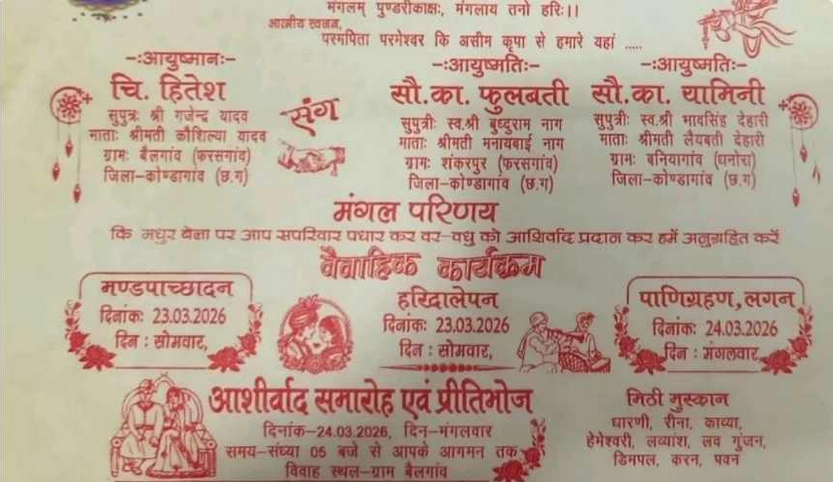 मंगलम् पुण्डरीकाक्षः, मंगलाय तनो हरिः।।
आत्मीय स्वजन,
परमपिता परमेश्वर कि असीम कृपा से हमारे यहां .....
-:आयुष्मानः-
चि. हितेश
सुपुत्रः श्री गजेन्द्र यादव
माताः श्रीमती कौशिल्या यादव
ग्रामः बैलगांव (फरसगांव)
जिला-कोण्डागांव (छ.ग)
संग
-:आयुष्मतिः-
सौ.का. फुलबती
सुपुत्रीः स्व.श्री बुध्दुराम नाग
माताः श्रीमती मनायबाई नाग
ग्रामः शंकरपुर (फरसगांव)
जिला-कोण्डागांव (छ.ग)
-:आयुष्मतिः-
सौ.का. यामिनी
सुपुत्रीः स्व.श्री भावसिंह देहारी
माताः श्रीमती लैयबती देहारी
ग्रामः बनियागांव (धनोरा)
जिला-कोण्डागांव (छ.ग)
मंगल परिणय
कि मधुर बेला पर आप सपरिवार पधार कर वर-वधु को आशिर्वाद प्रदान कर हमें अनुग्रहित करें
वैवाहिक कार्यक्रम
मण्डपाच्छादन
दिनांकः 23.03.2026
दिन : सोमवार,
हरिदालेपन
दिनांकः 23.03.2026
दिन : सोमवार,
पाणिग्रहण, लगन
दिनांकः 24.03.2026
दिन : मंगलवार
आशीर्वाद समारोह एवं प्रीतिभोज
दिनांक-24.03.2026, दिन-मंगलवार
समय-संध्या 05 बजे से आपके आगमन तक
विवाह स्थल-ग्राम बैलगांव
मिठी मुस्कान
धारणी, रीना, काव्या,
हेमेश्वरी, लव्यांश, लव गुंजन,
डिमपल, करन, पवन